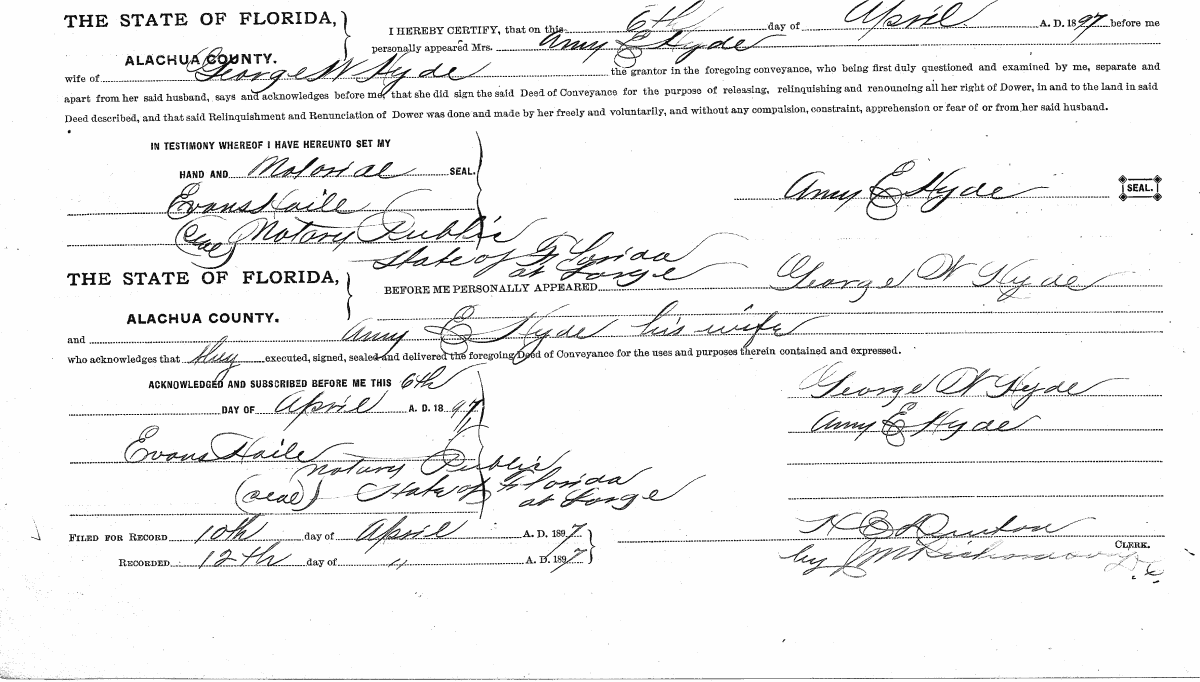 THE STATE OF FLORIDA,
ALACHUA COUNTY.
I HEREBY CERTIFY, that on this 6th day of April A. D. 1897 before me
personally appeared Mrs. Amy E Hyde
wife of George W Hyde the grantor in the foregoing conveyance, who being first duly questioned and examined by me, separate and
apart from her said husband, says and acknowledges before me, that she did sign the said Deed of Conveyance for the purpose of releasing, relinquishing and renouncing all her right of Dower, in and to the land in said
Deed described, and that said Relinquishment and Renunciation of Dower was done and made by her freely and voluntarily, and without any compulsion, constraint, apprehension or fear of or from her said husband.
IN TESTIMONY WHEREOF I HAVE HEREUNTO SET MY
HAND AND Notorial SEAL.
Amy E Hyde SEAL.
Evans Haile
(seal) Notary Public
State of Florida
at Large
THE STATE OF FLORIDA,
ALACHUA COUNTY.
BEFORE ME PERSONALLY APPEARED George W Hyde
and Amy E Hyde his wife
who acknowledges that they executed, signed, sealed and delivered the foregoing Deed of Conveyance for the uses and purposes therein contained and expressed.
ACKNOWLEDGED AND SUBSCRIBED BEFORE ME THIS 6th
DAY OF April A. D. 1897
George W Hyde
Amy E Hyde
Evans Haile
Notary Public
(seal) State of Florida
at Large
FILED FOR RECORD 10th day of April A. D. 1897
RECORDED 12th day of " A. D. 1897
H E
CLERK.
by J M D.C.